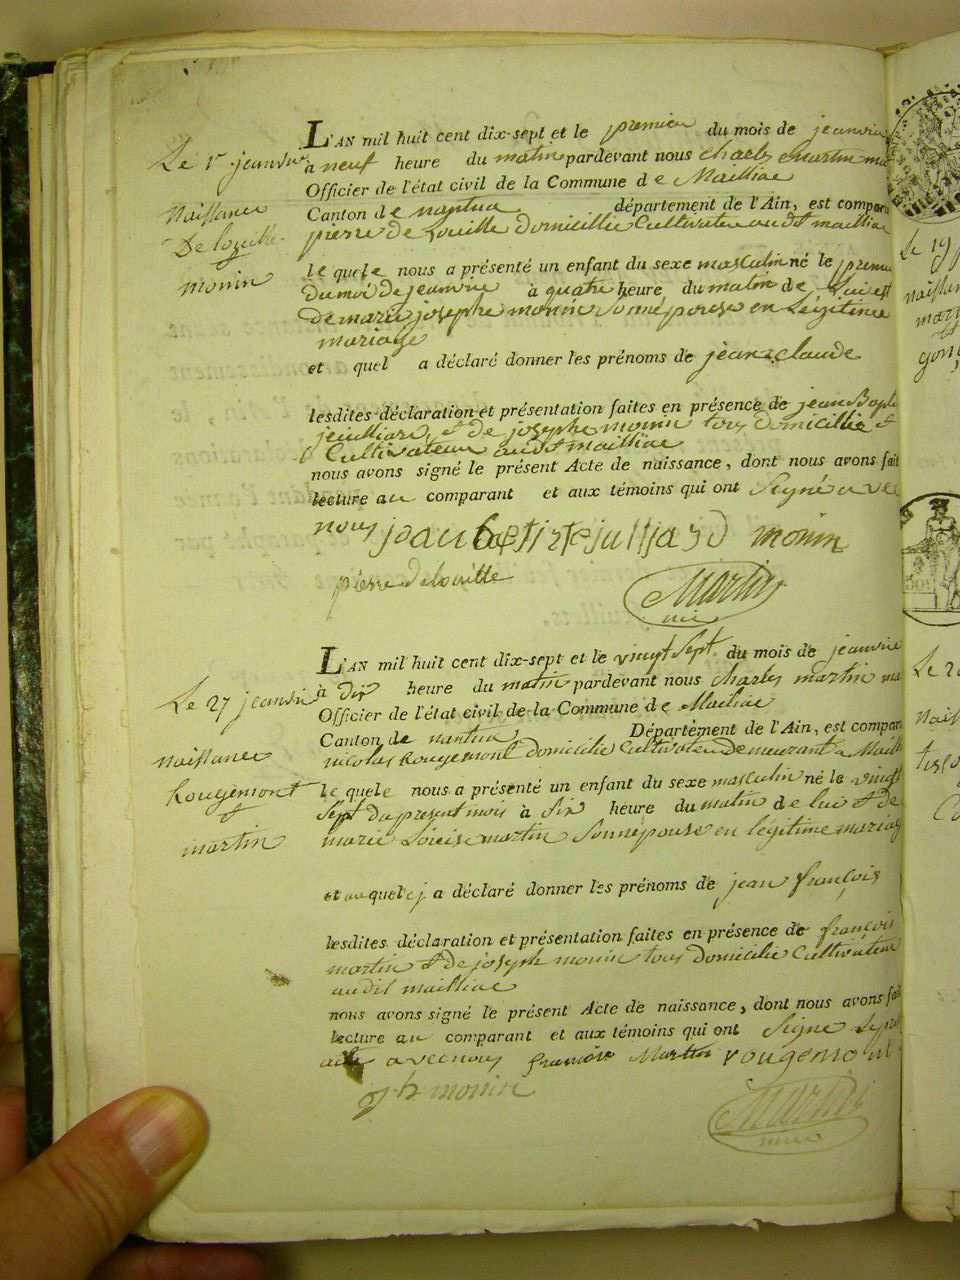 L'AN mil huit cent dix-sept et le premier du mois de jeanvier
Le 1r jeanvier
à neuf heure du matin pardevant nous charles martin
Officier de l'état civil de la Commune de Mailliac
naissance
Canton de nantua département de l'Ain, est compar
De louille
pierre de Louille domicillié Cultivateur audit mailliac
monin
le quele nous a présenté un enfant du sexe masculin né le premi
du moi de jeanvire à quatre heure du matin de Lui et
de marie josephe monin Sonnépouse en Légitime
mariage
et quel a déclaré donner les prénoms de jean claude
lesdites déclaration et présentation faites en présence de jean Bapti
juilliard, et de josephe monin tous domicillié et
Cultivateur audit mailliac
nous avons signé le présent Acte de naissance, dont nous avons fait
lecture au comparant et aux témoins qui ont Signé avec
nous jean batiste julliard monin
pierre delouille
Martin
L'AN mil huit cent dix-sept et le vingt Sept du mois de jeanvire
Le 27 jeanvier
à dix heure du matin pardevant nous charles martin
Officier de l'état civil de la Commune de Mailiac
Canton de nantua Département de l'Ain, est compar
naissance
nicolas Rougemont domicilié Cultivateur demeurant a Maill
Rougemont
le quele nous a présenté un enfant du sexe masculin né le vingt
et
Sept du present mois à Six heure du matin de lui et de
martin
marie Loïeise martin Sonnépouse en légitime mariag
et auquel a déclaré donner les prénoms de jean françois
lesdites déclaration et présentation faites en présence de françois
martin et de joseph monin tous domicilié Cultivateur
audit mailliac
nous avons signé le présent Acte de naissance, dont nous avons fait
lecture au comparant et aux témoins qui ont Signe
avec nous françois Martin rougemont
jh monin
Martin
Le 19
naissan
Le 2
naiss